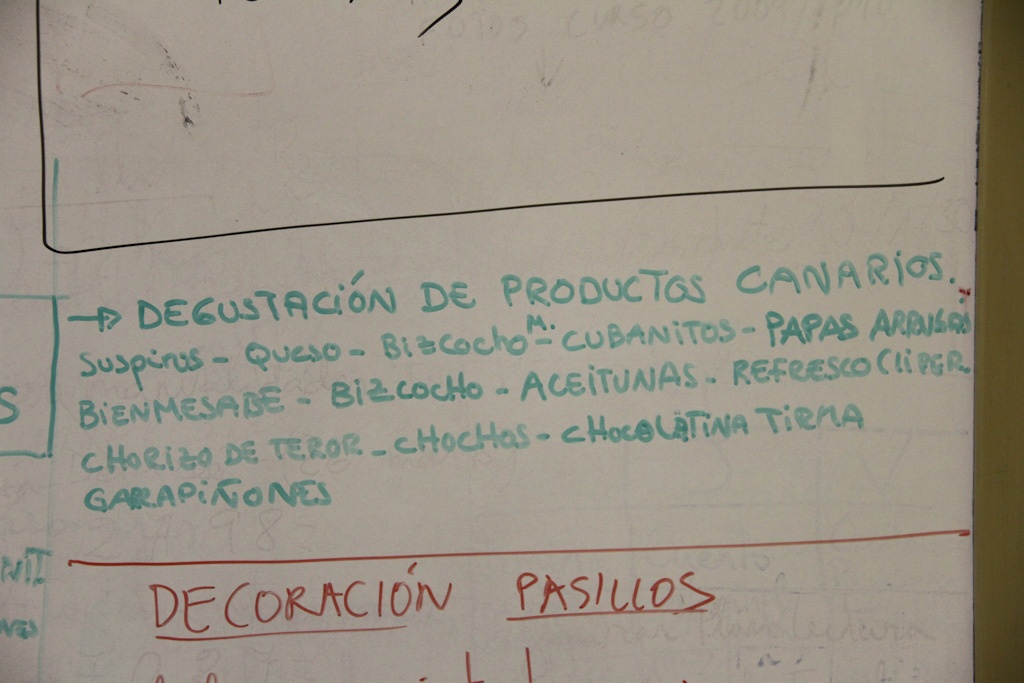 → DEGUSTACIÓN DE PRODUCTOS CANARIOS.
SUSPIROS - QUESO - BIZCOCHO M. - CUBANITOS - PAPAS ARRUGAS
BIENMESABE - BIZCOCHO - ACEITUNAS - REFRESCO CLIPER.
CHORIZO DE TEROR - CHOCHOS - CHOCOLATINA TIRMA
GARRAPIÑONES
DECORACIÓN PASILLOS